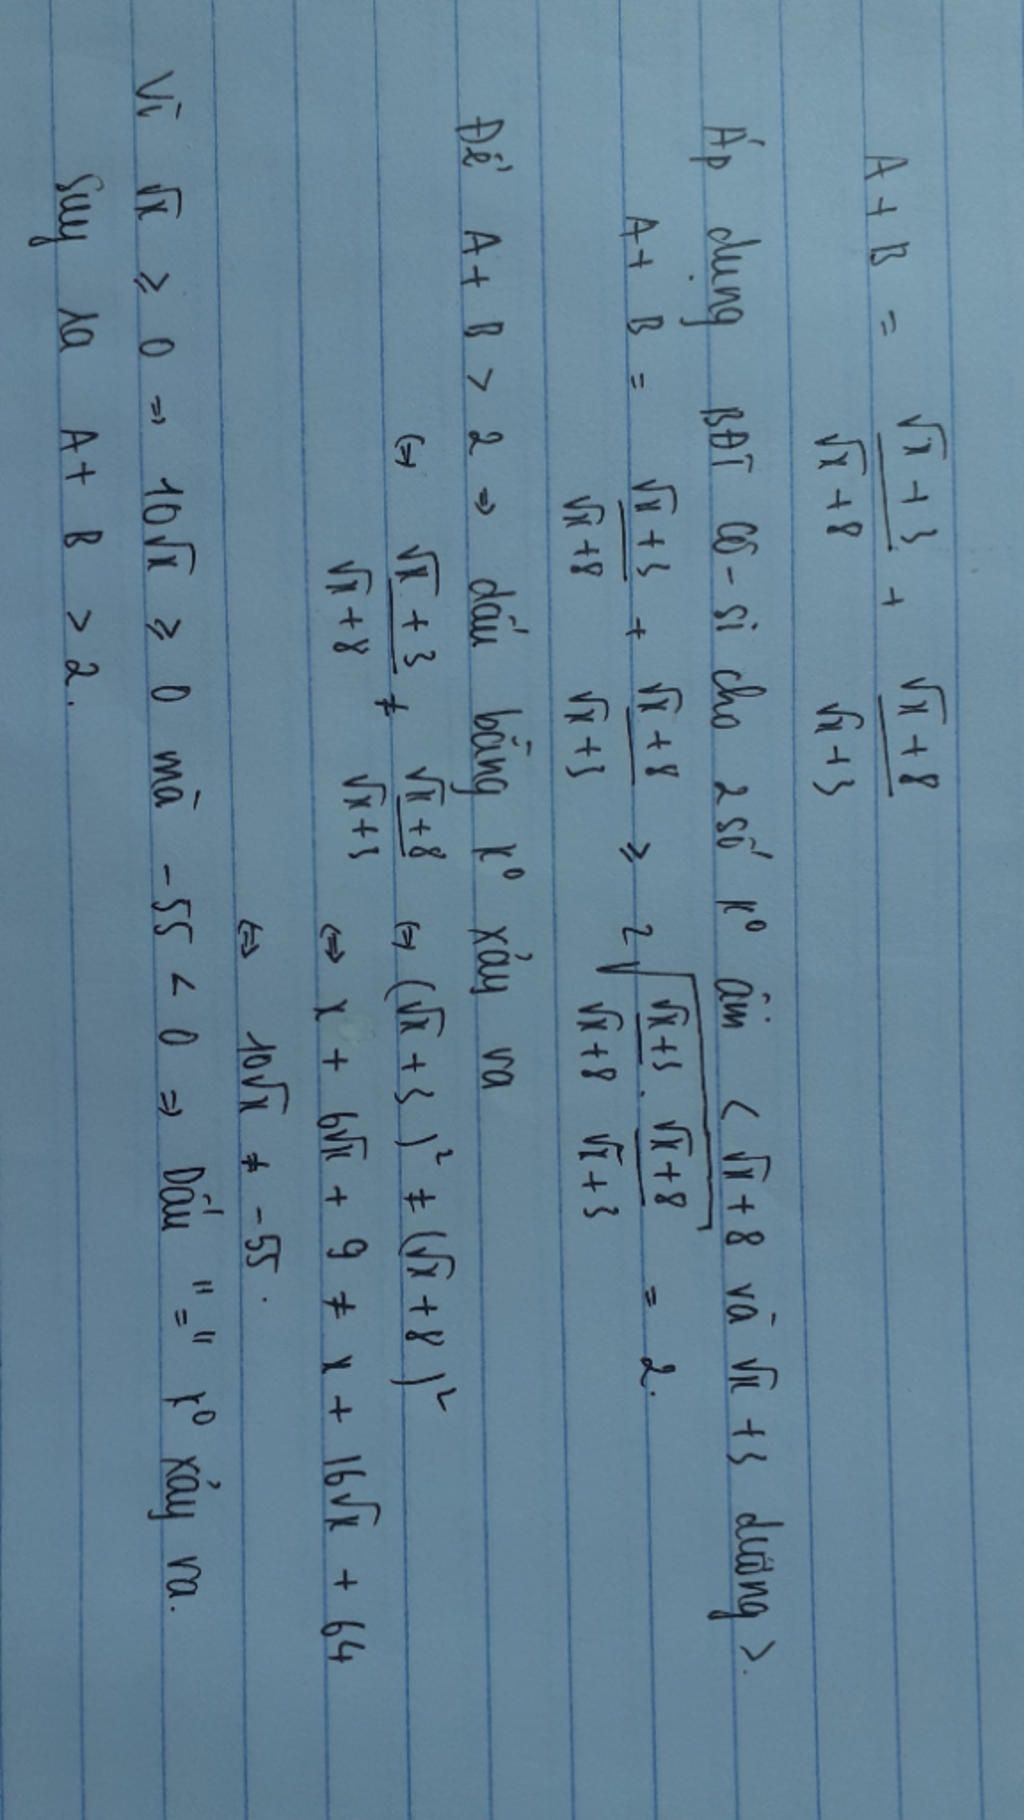 A + B = (√x + 3)/(√x + 8) + (√x + 8)/(√x + 3)
Áp dụng BĐT Cô-si cho 2 số k⁰ âm < √x + 8 và √x + 3 dương >.
A + B = (√x + 3)/(√x + 8) + (√x + 8)/(√x + 3) ≥ 2√((√x + 3)/(√x + 8) . (√x + 8)/(√x + 3)) = 2.
Để A + B > 2 => dấu bằng k⁰ xảy ra
<=> (√x + 3)/(√x + 8) ≠ (√x + 8)/(√x + 3) <=> (√x + 3)² ≠ (√x + 8)²
<=> x + 6√x + 9 ≠ x + 16√x + 64
<=> 10√x ≠ -55.
Vì √x ≥ 0 => 10√x ≥ 0 mà -55 < 0 => Dấu "=" k⁰ xảy ra.
Suy ra A + B > 2.